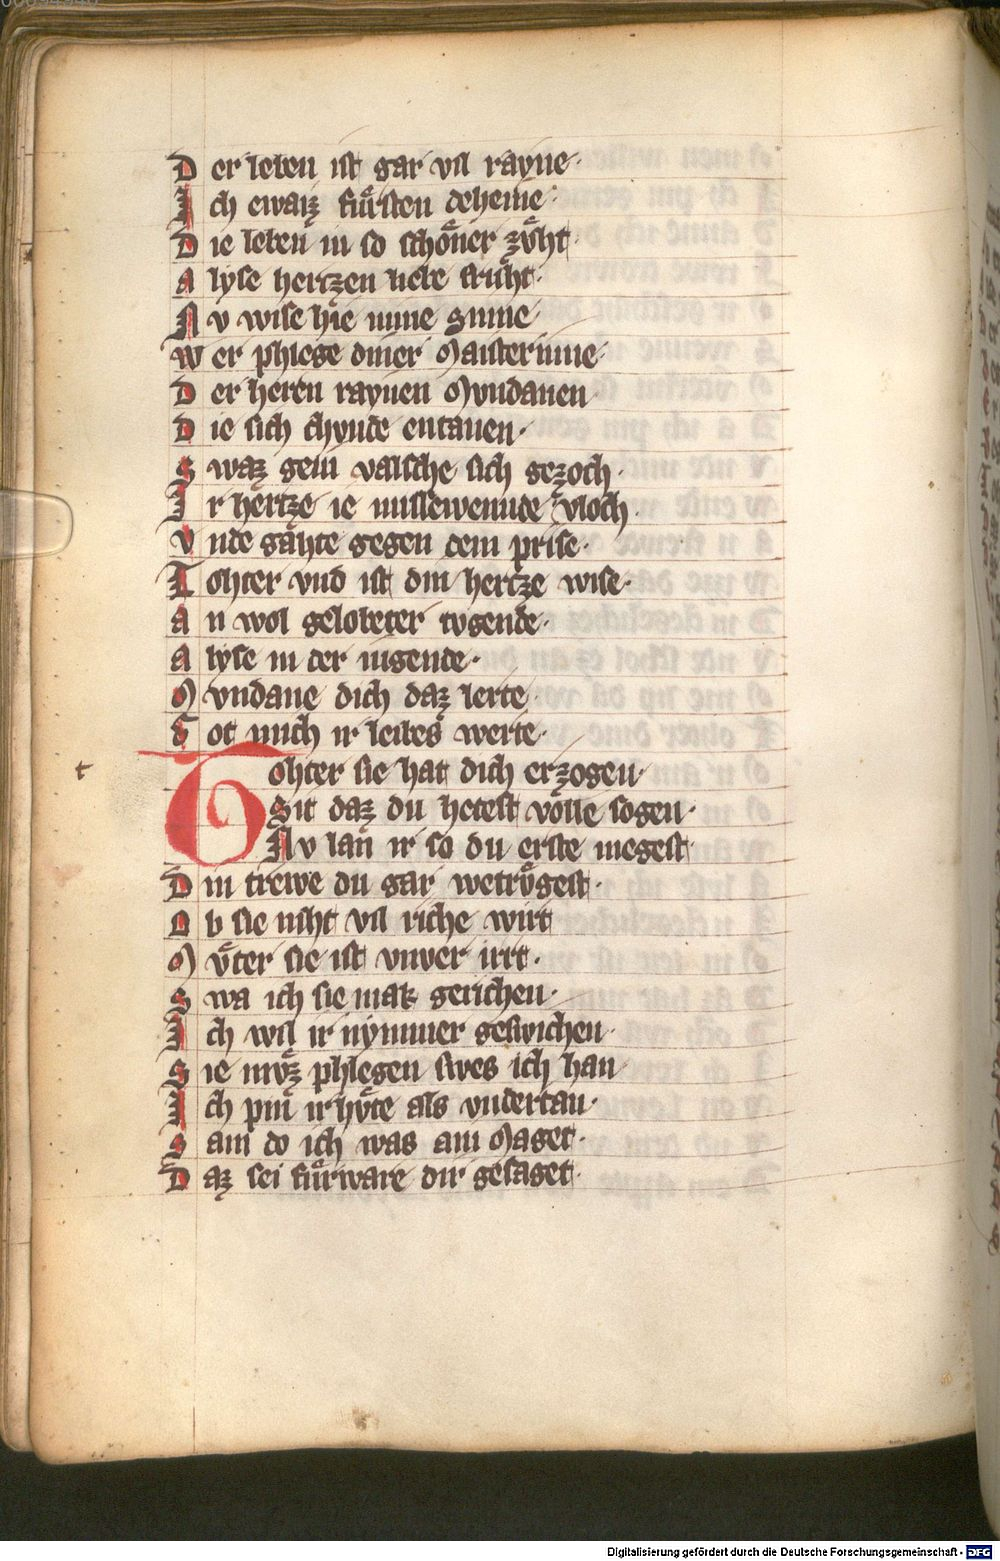 Der leben ist gar vil rayne·
Ich enwaiz fuͤrsten deheine·
Die leben in so schoͤner zvͤht·
Alyse hertzen liebe frucht·
Nv wise hie mine sinne·
Wer phlege diner Maisterinne·
Der heren raynen Mundanen·
Die sich chunde entanen·
Swaz gein valsche sich gezoch·
Ir hertze ie missewennde vloch·
Vnde gahte gegen dem prise·
Tohter vnd ist din hertze wise·
An wol gelobeter tvgende·
Alyse in der iugende·
Mvndane dich daz lerte
Got mich ir leibes werte·
t
Tohter sie hat dich erzogen·
Sit daz du hetest volle sogen·
Nv lan ir so du erste megest
Din trewe du gar wetrvͤgest·
Ob sie niht vil riche wirt
Mvͤter sie ist vnver irrt·
Swa ich sie mak gerichen·
Ich wil ir nymmer geswichen·
Sie mvͤz phlegen swes ich han·
Ich pin ir hvͤte als vndertan·
Sam do ich was ain Maget·
Daz sei fuͤrware dir gesaget·
Digitalisierung gefördert durch die Deutsche Forschungsgemeinschaft - DFG